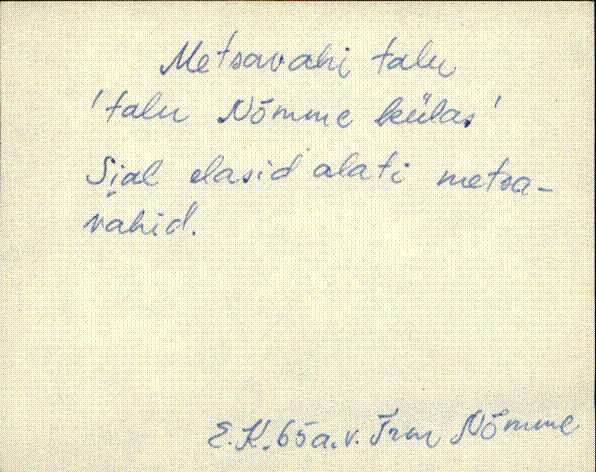 Metsavahi talu
'talu Nõmme külas'
Sial elasid alati metsa-
vahid.
E. K. 65 a. v. Trm Nõmme